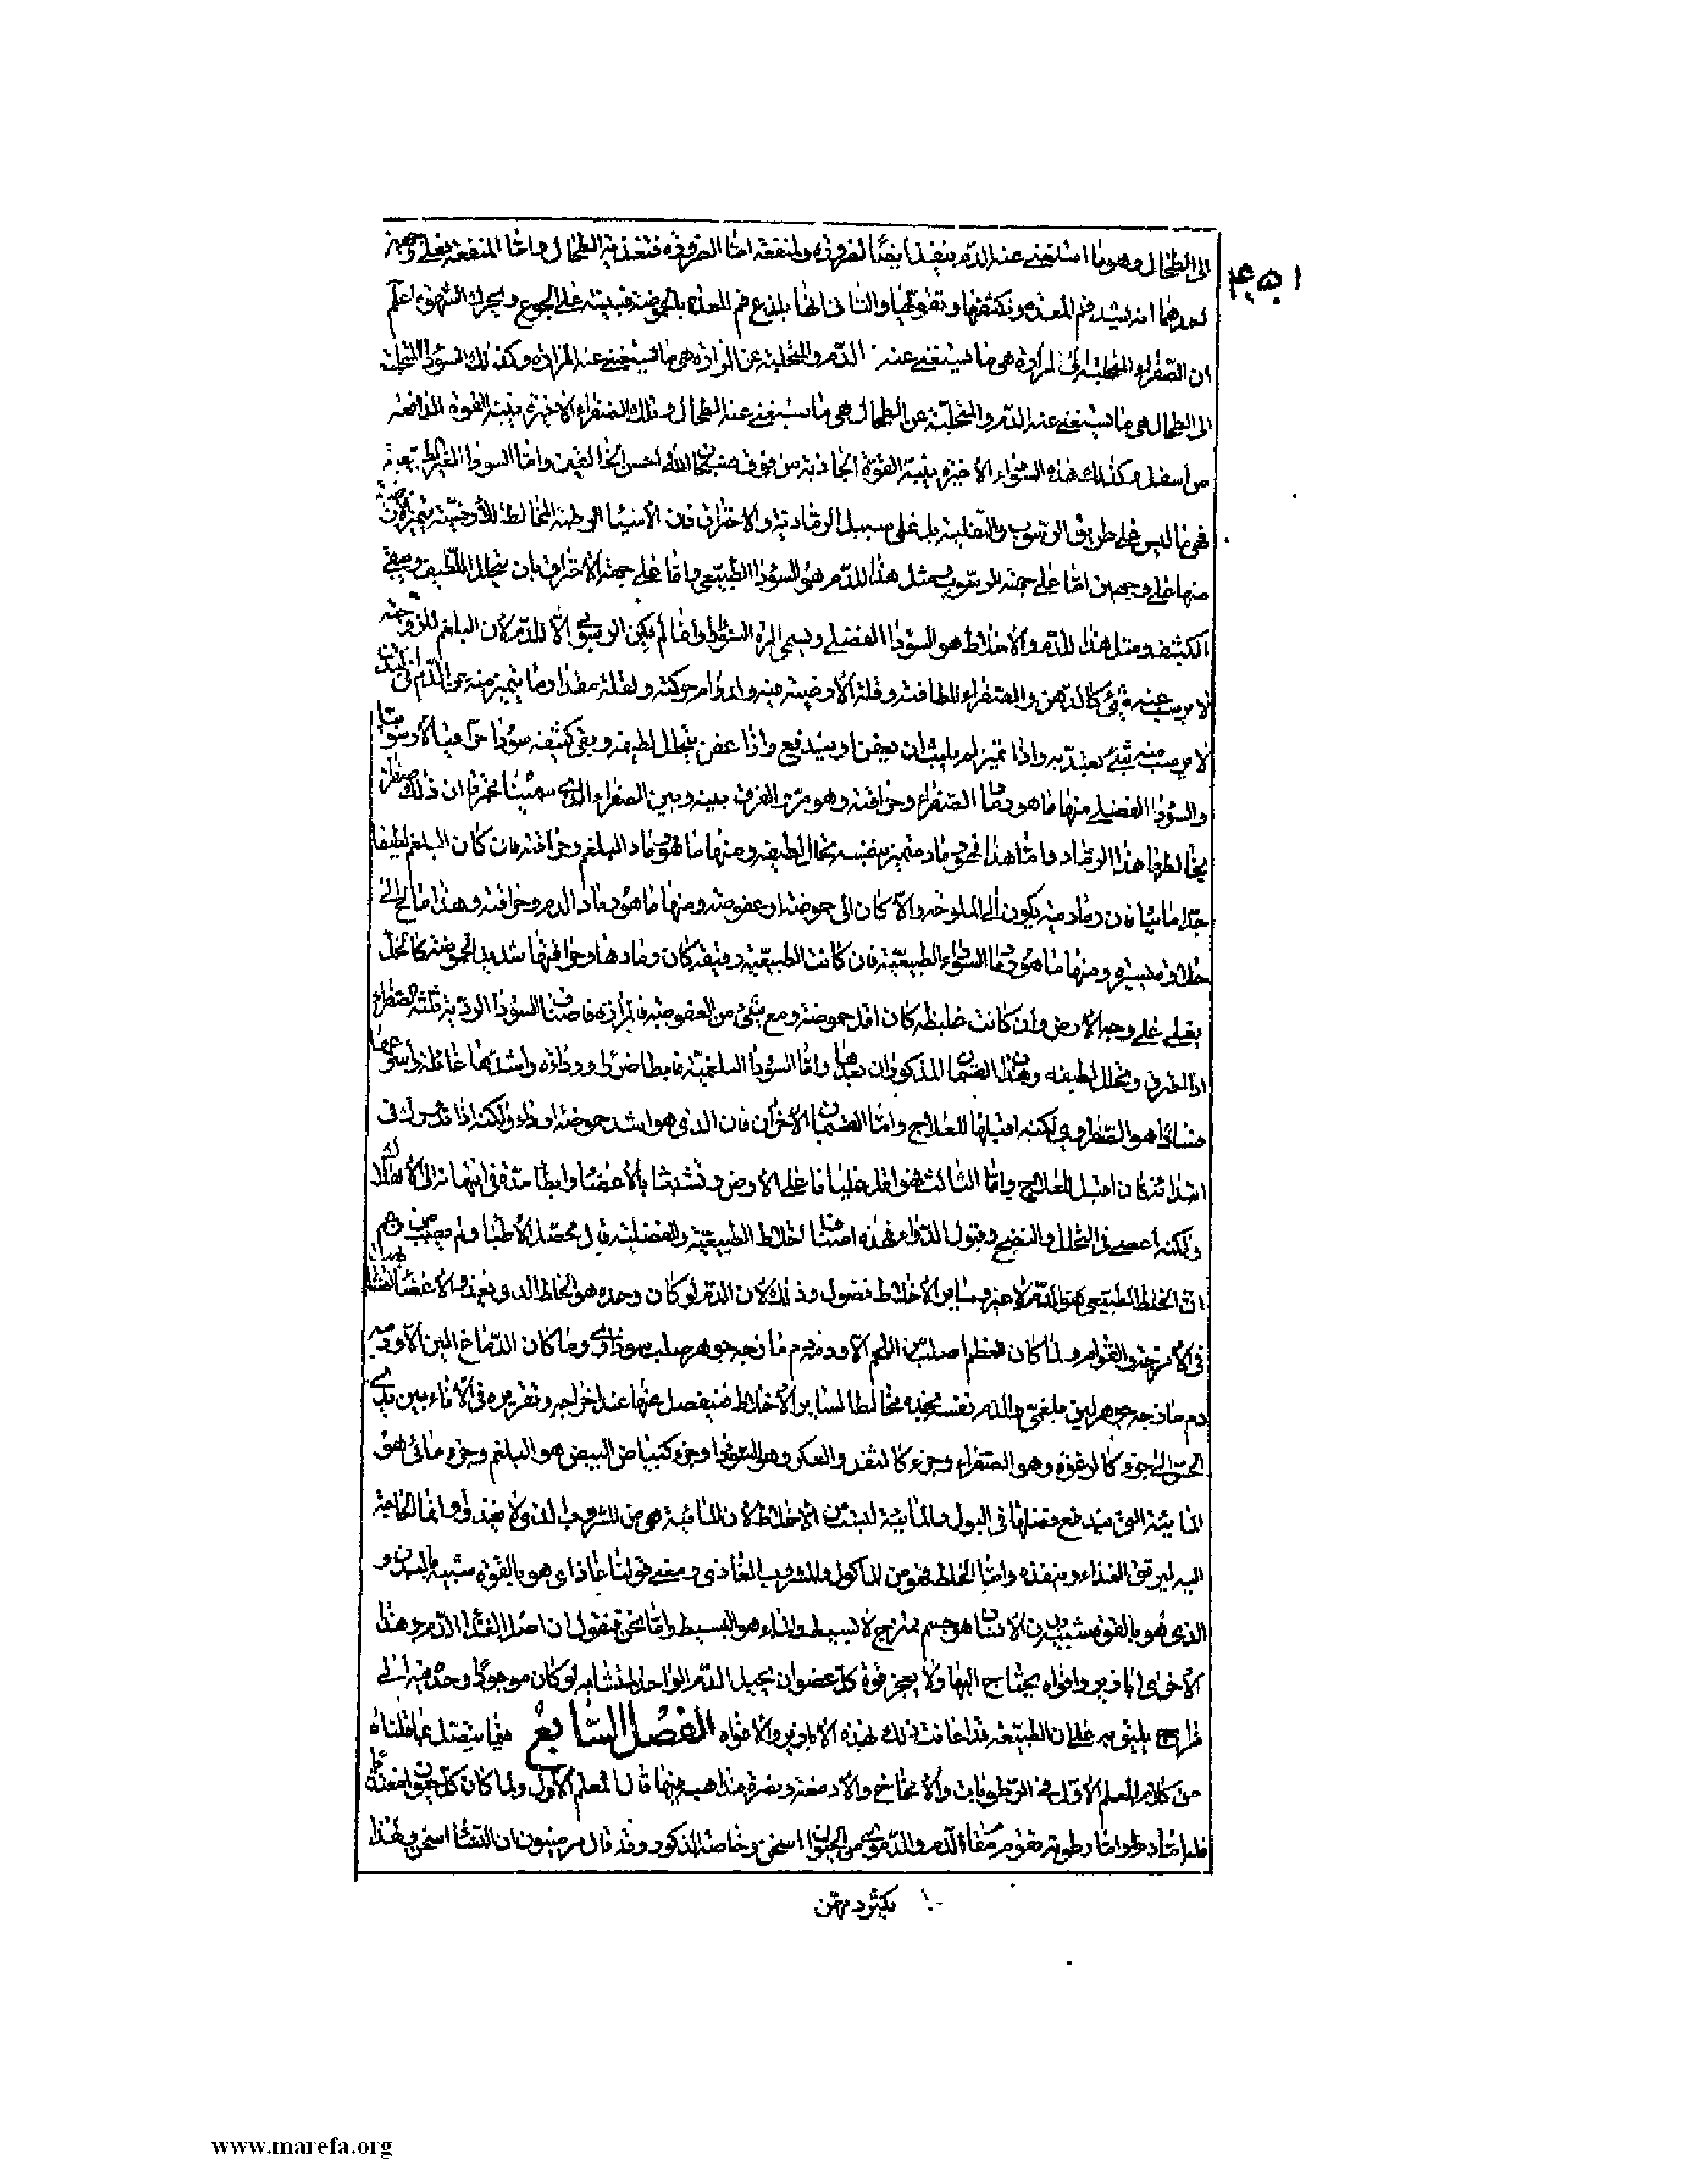 الى الطحال وهو ما استغنى عنه الدم ينفذ ايضا لضرورة ولمنفعة اما الضرورة فتغذية الطحال واما المنفعة فعلى وجهين
احدهما انه يشد فم المعدة ويكثفها ويقويها والثانى انها يلذع فم المعدة بالحموضة فينبه على الجوع ويحرك الشهوة اعلم
ان الصفراء المتحلبة الى المرارة هى ما يستغنى عنه الدم والمتحلبة عن المرارة هى ما يستغنى عنه المرارة وكذلك السودا المتحلبة
الى الطحال هى ما يستغنى عنه الدم والمتحلبة عن الطحال هى ما يستغنى عنه الطحال وتلك الصفراء الاخيرة ينبه القوة الدافعة
من اسفل وكذلك هذه السوداء الاخيرة ينبه القوة الجاذبة من فوق فسبحان الله احسن الخالقين واما السودا الغير الطبيعية
فهى ما ليس على طريق الرسوب والثفلية بل على سبيل الرمادية والاحتراق فان الاشيا الرطبة المخالطة للارضية يتميز الارضية
منها على وجهين اما على جهة الرسوب كمثل هذا للدم هو السودا الطبيعى واما على جهة الاحتراق بان يتحلل اللطيف ويبقى
الكثيف ومثل هذا للدم والاخلاط هو السودا الفضلى ويسمى المرة السودا وانما لم يكن الرسوب الا للدم لان البلغم للزوجته
لا يرسب عنه شئ كالدهن والصفراء للطافته وقلة الارضية فيه ولدوام حركته ولقلة مقدار ما يتميز منه عن الدم فى البدن
لا يرسب منه شئ يعتد به واذا تميز لم يلبث ان يعفن او يندفع واذا عفن يتحلل لطيفه وبقى كثيفه سودا حراقيا لا رسوبيا
والسودا الفضلى منها ما هو رماد الصفراء وحراقته وهو مر والفرق بينه وبين الصفراء الذى سميناه محترقا ان ذلك صفراء
يخالطها هذا الرماد واما هذا فهو رماد متميز بنفسه تحلل لطيفه ومنها ما هو رماد البلغم وحراقته فان كان البلغم لطيفا
جدا مائيا فان رماديته يكون الى الملوحة والا كان الى حموضة او عفوصة ومنها ما هو رماد الدم وحراقته وهذا مالح الى
حلاوة يسيره ومنها ما هو رماد السوداء الطبيعية فان كانت الطبيعية رقيقة كان رمادها وحراقتها شديد الحموضة كالخل
يغلى على وجه الارض وان كانت غليظة كان اقل حموضة ومع شئ من العفوصة والمرارة فاصناف السودا الردية ثلثة الصفراء
اذا احترق وتحلل لطيفه وهذان القسمان المذكوران بعدها واما السودا البلغمية فابطا ضررا ورداءة واشدها غائلة واسرعها
فسادا هو الصفراوى لكنه اقبلها للعلاج واما القسمان الاخران فان الذى هو اشد حموضة اردء ولكنه اذا تدورك فى
ابتدائه كان اقبل للعلاج واما الثالث فهو اقل غليانا على الارض وتشبثا بالاعضا وابطا مدة فى انتهائه الى الاهلاك
ولكنه اعصى فى التحلل والنضج وقبول الدواء فهذه اصناف الاخلاط الطبيعية والفضلية قال محصل الاطبا ولم يصب من زعم
ان الخلط الطبيعى هو الدم لا غير وساير الاخلاط فضول وذلك لان الدم لو كان وحده هو الخلط الذى يغذو الاعضا لتشابهت
فى الامزجة والقوام ولما كان العظم اصلب من اللحم الا ودمه دم مازجه جوهر صلب سوداوى وما كان الدماغ الين الا ودمه
دم مازجه جوهر لين بلغمى والدم نفسه نجده مخالطا لساير الاخلاط فينفصل عنها عند اخراجه وتقريره فى الاناء بين يدى
الحس الى جزء كالرغوة وهو الصفراء وجزء كالثفل والعكر وهو السودا وجزء كبياض البيض هو البلغم وجزء مائى هو
المائية التى يندفع فضلها فى البول والمائية ليست من الاخلاط لان المائية هى من المشروب الذى لا يغذو وانما الحاجة
اليه ليرقق الغذاء وينفذه واما الخلط فهو من الماكول والمشروب الغاذى ومعنى قولنا غاذ اى هو بالقوة شبيه بالبدن و
الذى هو بالقوة شبيه ببدن الانسان هو جسم ممتزج لا بسيط والماء هو البسيط واما نحن فنقول ان اصل الغذا الدم وهذا
الاخرى ابازير وافواه يحتاج اليها ولا يعجز قوة كل عضو ان يحيل الدم الواحد المتشابه لو كان موجودا وحده فيه الى
مزاج يليق به على ان الطبيعة قد اعانت ذلك بهذه الابازير والافواه الفصل السابع فيما يتصل بما قلناه
من كلام المعلم الاول فى الرطوبات والامخاخ والادمغة ونصرة مذاهبه فيها قال المعلم الاول ولما كان كل حيوان فعنده
فله اما دم واما رطوبة تقوم مقام الدم والدموى من الحيوان اسخن وخاصة الذكور وقد قال برمنيدس ان النسا اسخن ولهذا
يكثر دمهن
www.marefa.org